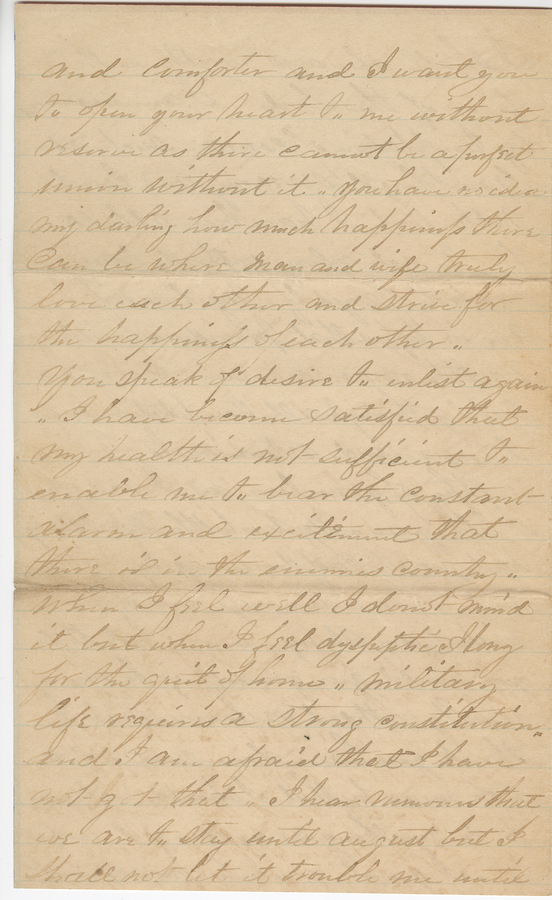 and comforter and I want you
to open your heart to me without
reserve as there cannot be a perfect
union without it " You have no idea
my darling how much happiness there
can be where man and wife truly
love each other and strive for
the happiness of each other "
You speak of desire to enlist again
" I have become satisfied that
my health is not sufficient to
enable me to bear the constant
alarm and excitement that
there is in the enemies country "
When I feel well I dont mind
it but when I feel dyspeptic I long
for the quiet of home " military
life requires a strong constitution "
and I am afraid that I have
not got that " I hear rumours that
we are to stay until august but I
shall not let it trouble me until